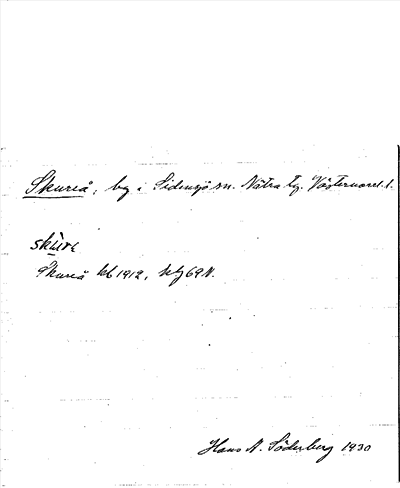 Skureå; by i Sidensjö sn. Nätra tg. Västernorrl. l.
skùrɛ
Skureå kb 1912, ktg 69 N.
Hans N. Söderberg 1930